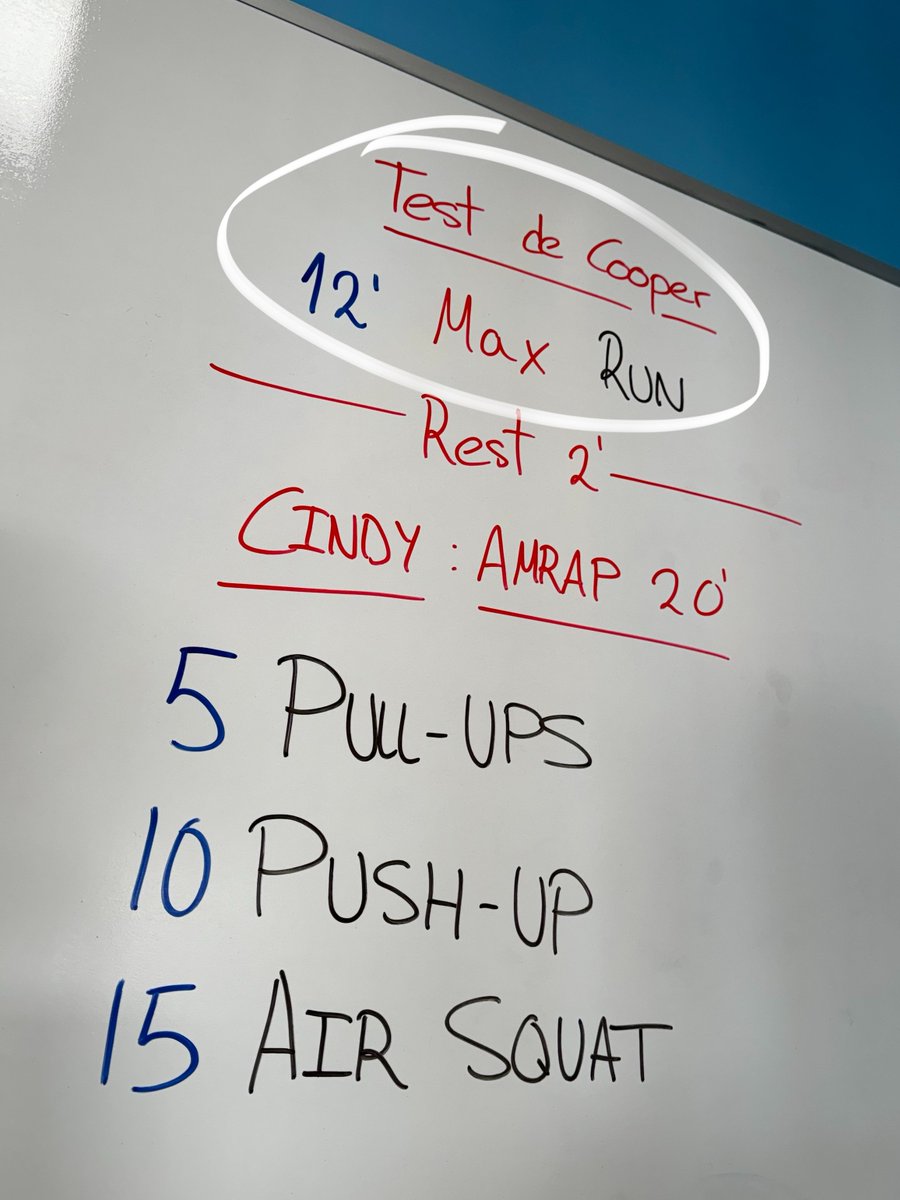 Test de Cooper
12' Max RUN
Rest 2'
CINDY : AMRAP 20'
5 PULL-UPS
10 PUSH-UP
15 AIR SQUAT